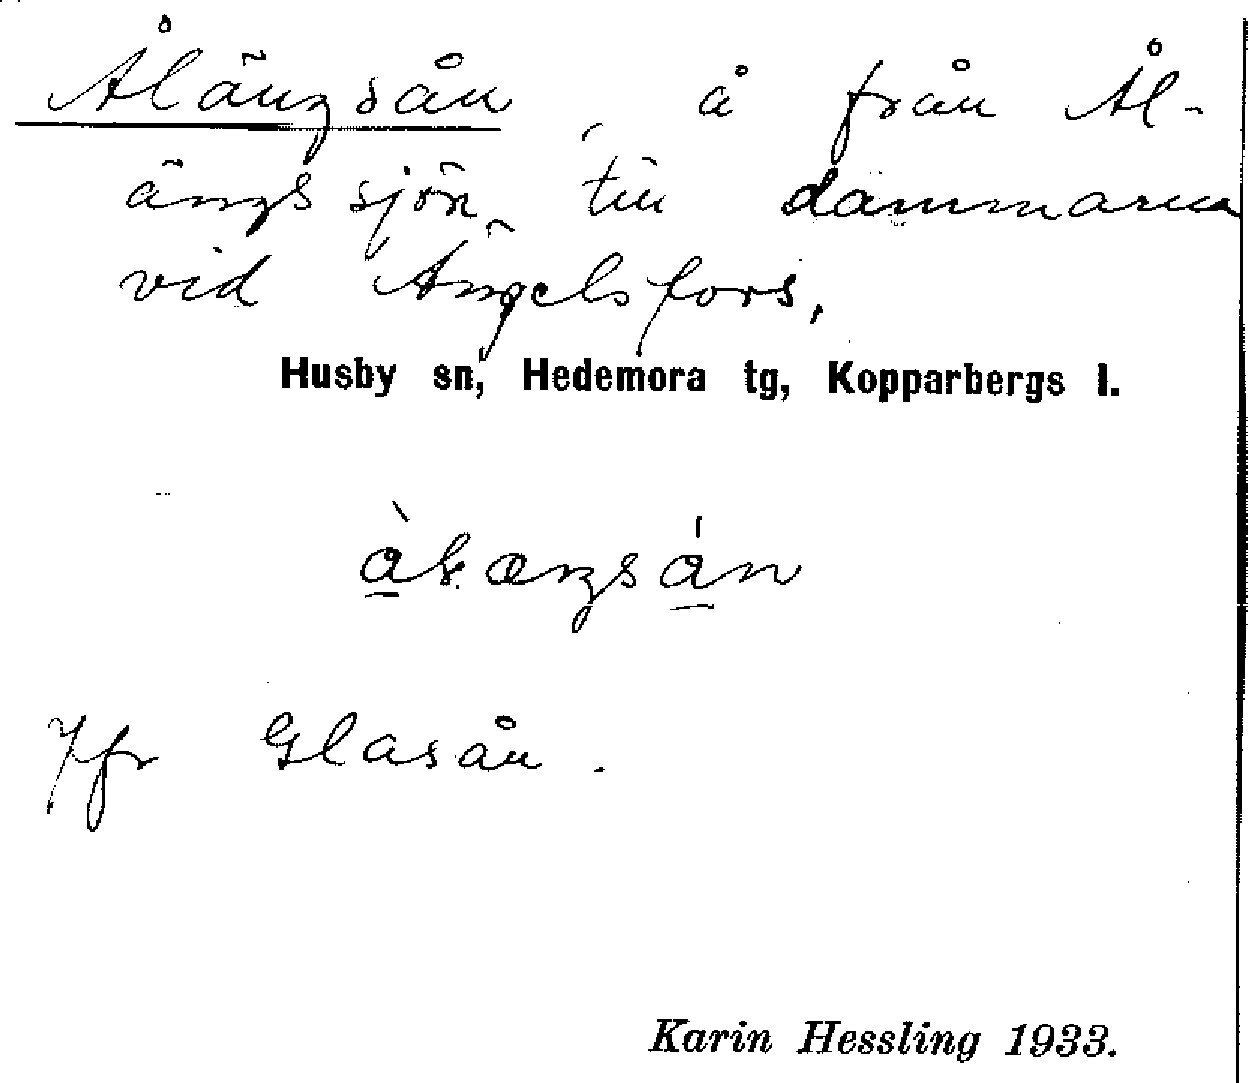 Ålängsån, å från Ål-
ängssjön till dammarna
vid Ängelsfors,
Husby sn, Hedemora tg, Kopparbergs l.
Jfr Glasån.
Karin Hessling 1933.